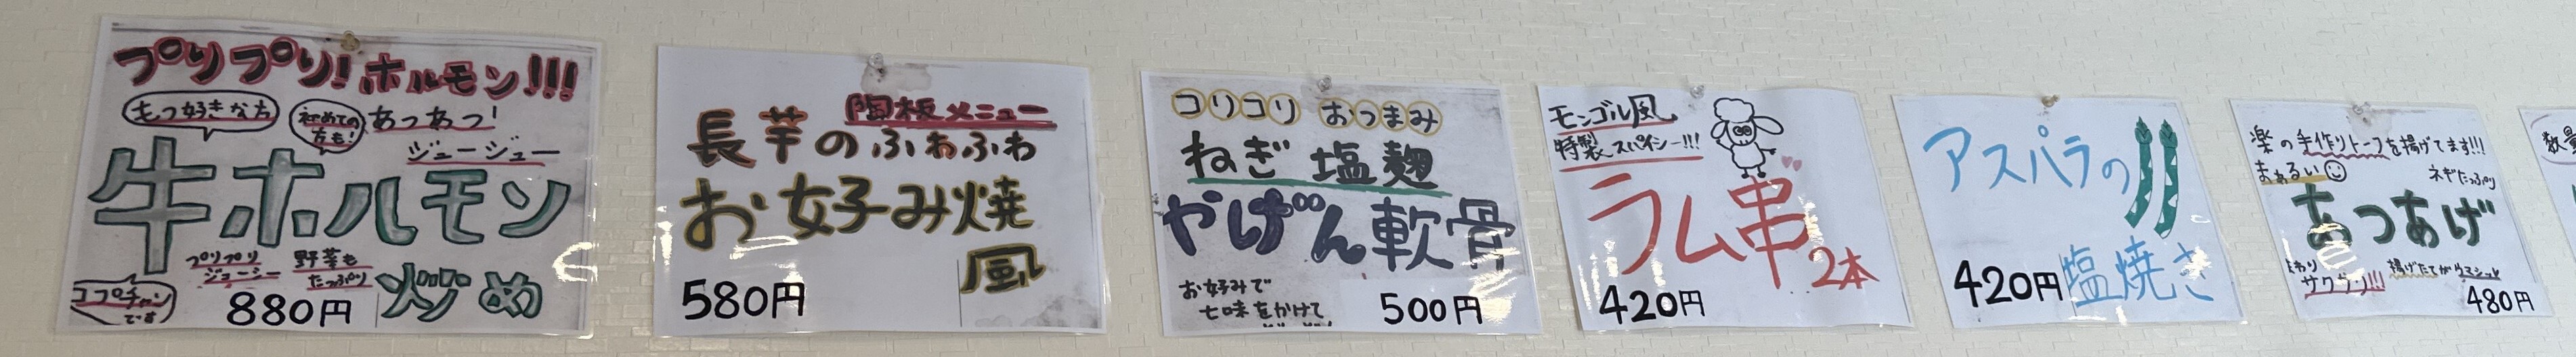 プリプリ!ホルモン!!!
もつ好きな方
初めての
方も!
あつあつ!
ジュージュー
牛ホルモン
炒め
プリプリ
ジューシー
野菜も
たっぷり
ココプチャン
です
880円
陶板メニュー
長芋のふわふわ
お好み焼
風
580円
コリコリ おつまみ
ねぎ塩麹
やげん軟骨
お好みで
七味をかけて
500円
モンゴル風
特製スパイシー!!!
ラム串
2本
420円
アスパラの
塩焼き
420円
楽の手作りトーフを揚げてます!!!
まぁるい
ネギたっぷり
あつあげ
まわり
サクサク!!!
揚げたてが
480円
数量